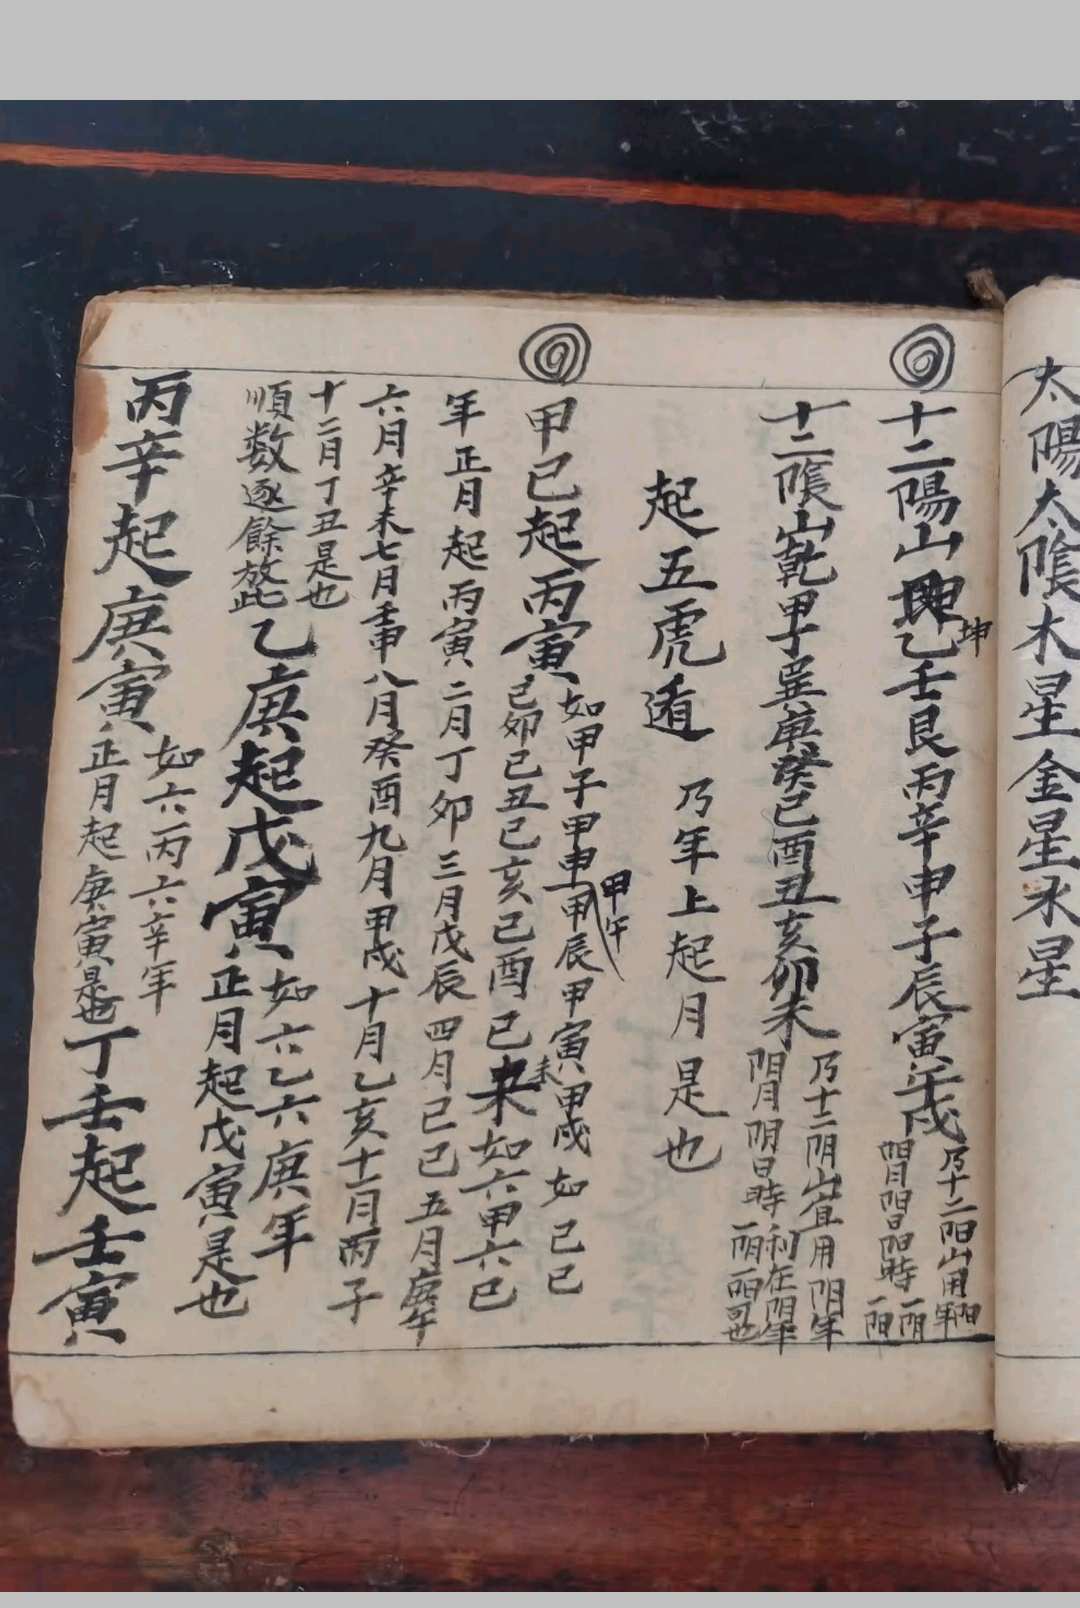 太陽太陰木星金星水星
十二陽山坤乙壬艮丙辛申子辰寅午戌
坤
乃十二阳山用阳年
阳月阳日阳時一阴
一阳
十二陰山乾甲子巽庚癸巳酉丑亥卯未
乃十二阴山宜用阴年
阴月阴日時利在阴年
一阴一阳是也
起五虎遁 乃年上起月是也
甲己起丙寅
如甲子甲申甲辰甲寅甲戌如己巳
甲午
己卯己丑己亥己酉己未如六甲六己
未
年正月起丙寅二月丁卯三月戊辰四月己巳五月庚午
六月辛未七月壬申八月癸酉九月甲戌十月乙亥十一月丙子
十二月丁丑是也
順数逐餘放此
乙庚起戊寅
如六乙六庚年
正月起戊寅是也
丙辛起庚寅
如六丙六辛年
正月起庚寅是也
丁壬起壬寅